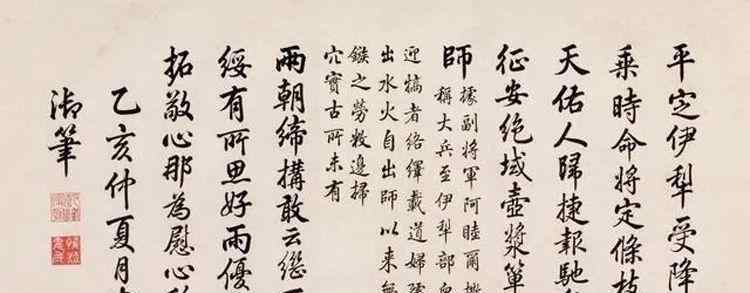 平定伊犁受降
乘時命將定條枝
天佑人歸捷報馳
征安絕域壺漿簞
師
據副將軍阿睦爾撒
稱大兵至伊犁部
迎犒者絡繹載道婦孺
出水火自出師以來無
鏃之勞敉邊掃
穴實古所未有
兩朝締搆敢云繼
綏有所思好雨優
拓敬心那為慰心
乙亥仲夏月
御筆